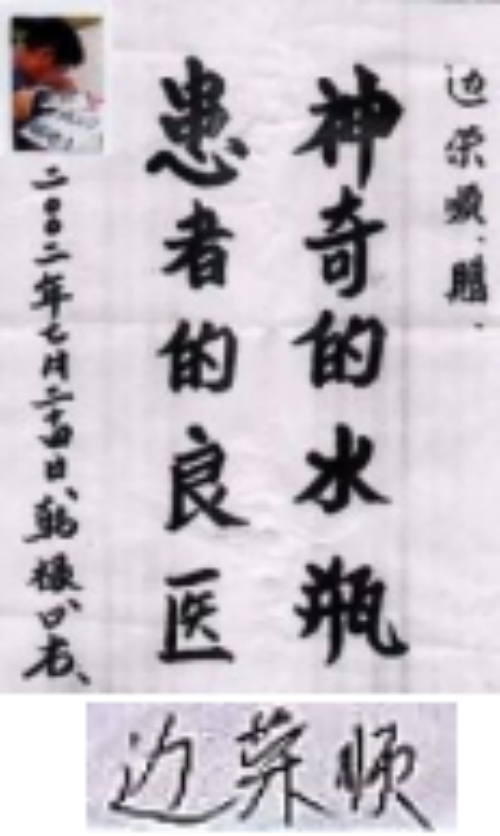 边荣顺、题、
神奇的水瓶
患者的良医
二〇〇二年七月二十四日、韩振
书、
边荣顺